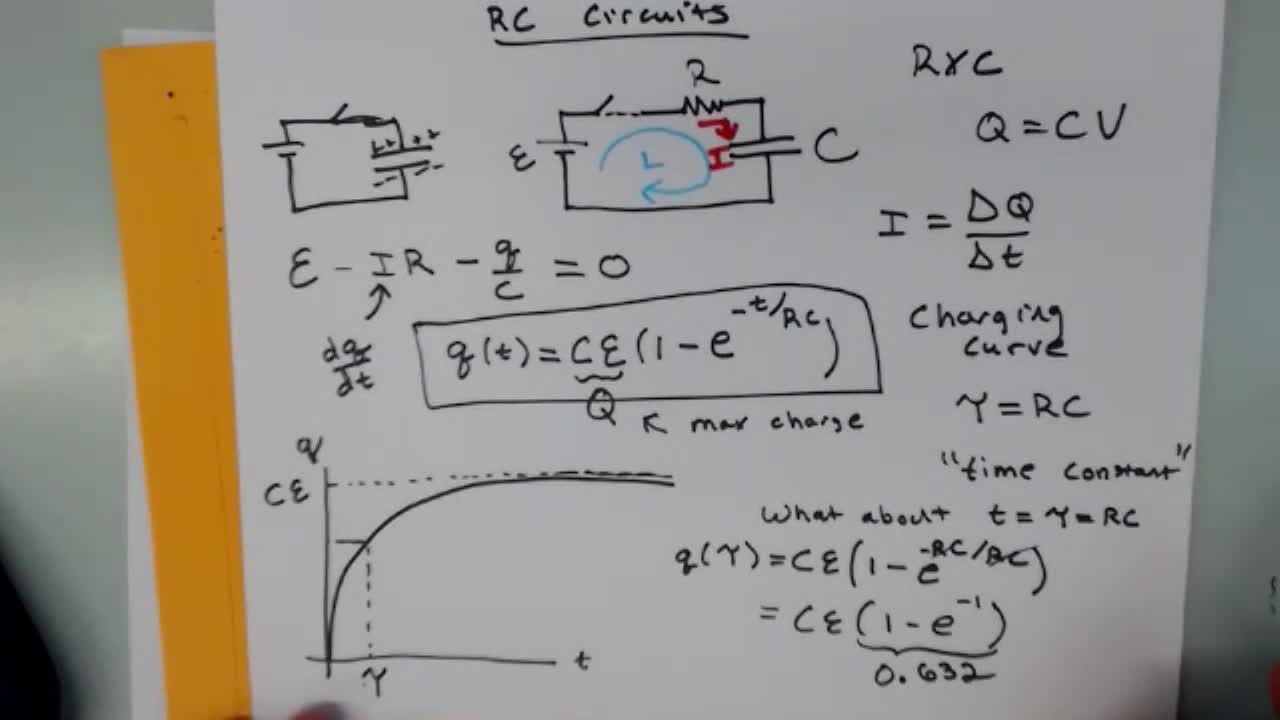 RC Circuits
R
ε
L
I
C
R×C
Q = CV
I = ΔQ/Δt
ε - IR - q/C = 0
dq/dt
q(t) = Cε(1 - e^-t/RC)
Q
max charge
Charging
curve
τ = RC
"time constant"
q
Cε
τ
t
What about t = τ = RC
q(τ) = Cε(1 - e^-RC/RC)
= Cε(1 - e^-1)
0.632